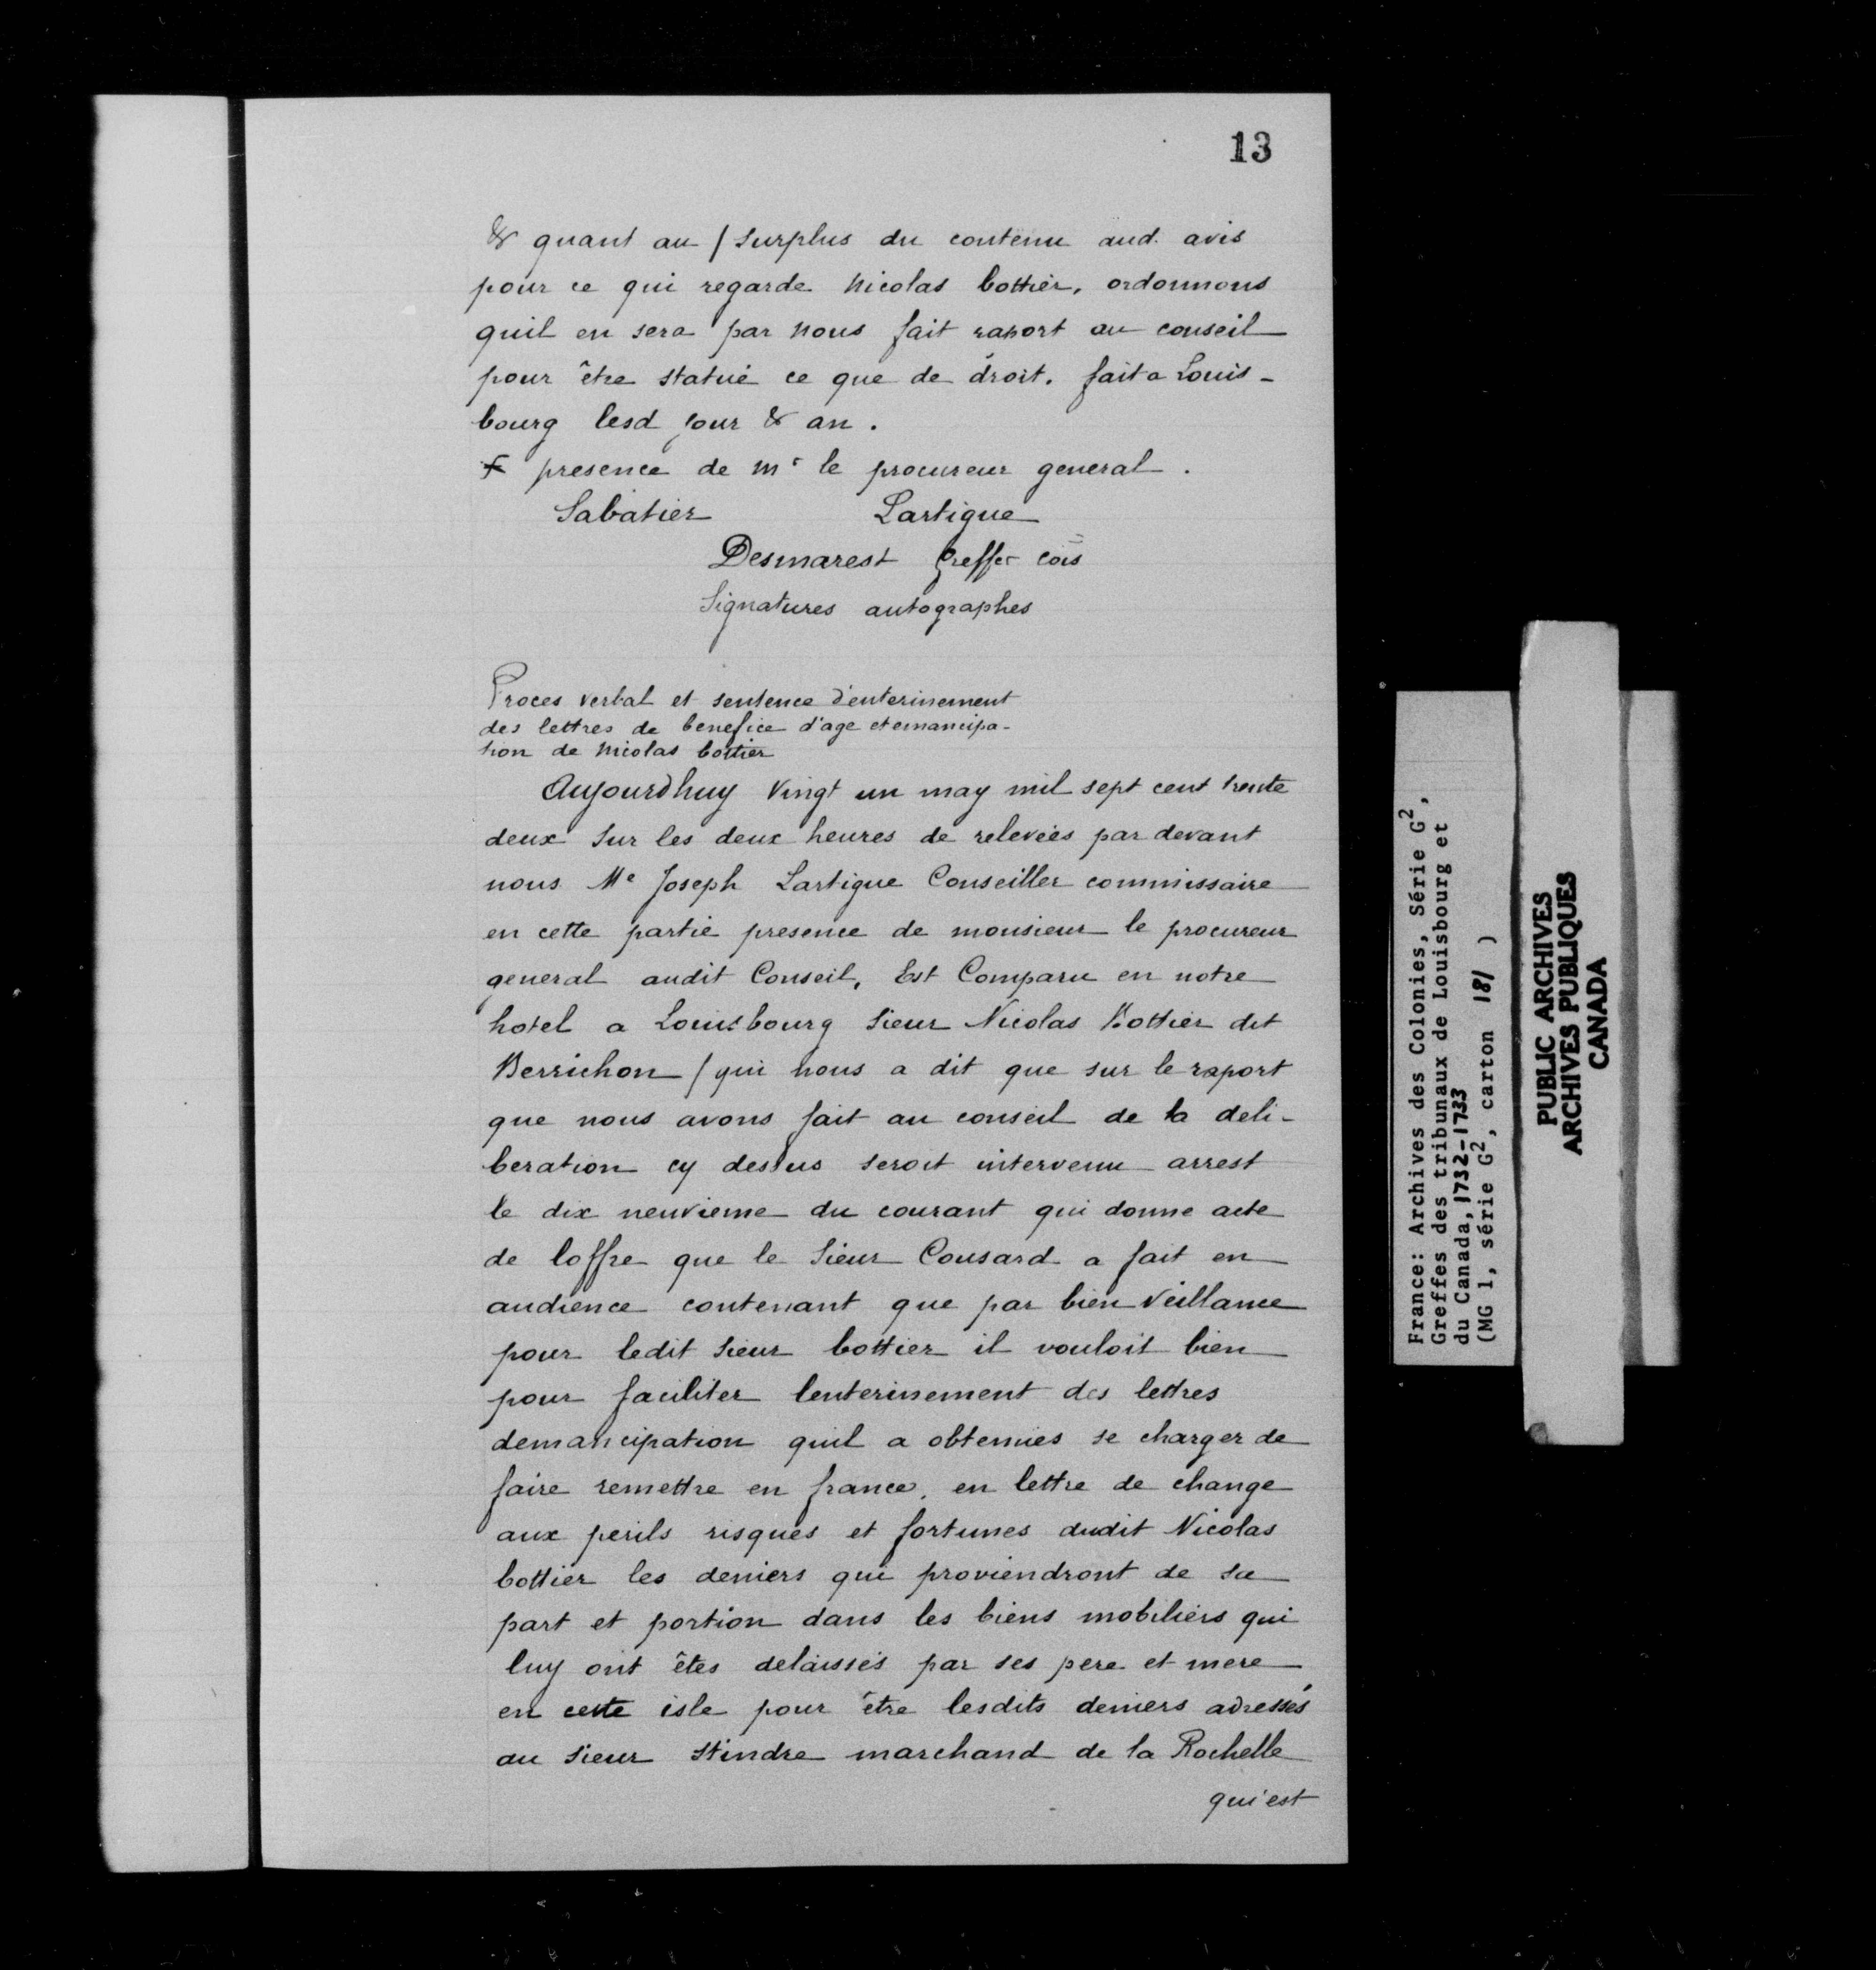 13
& quant au / surplus du contenu aud. avis
pour ce qui regarde Nicolas bottier, ordonnons
quil en sera par nous fait raport au conseil
pour être statué ce que de droit. fait a Louis-
bourg lesd jour & an.
presence de mr le procureur general.
Sabatier Lartigue
Desmarest greffer cois
Signatures autographes
Proces verbal et sentence d'enterinement
des lettres de benefice d'age et emancipa-
tion de Nicolas bottier
Aujourdhuy vingt un may mil sept cent trente
deux sur les deux heures de relevées par devant
nous Me Joseph Lartigue Conseiller commissaire
en cette partie presence de monsieur le procureur
general audit Conseil, Est Comparu en notre
hotel a Louisbourg Sieur Nicolas Bottier dit
Berrichon / qui nous a dit que sur le raport
que nous avons fait au conseil de la deli-
beration cy dessus seroit intervenu arrest
le dix neuvieme du courant qui donne acte
de loffre que le Sieur Cousard a fait en
audience contenant que par bien veillance
pour ledit sieur bottier il vouloit bien
pour faciliter lenterinement des lettres
demancipation quil a obtenues se charger de
faire remettre en france, en lettre de change
aux perils risques et fortunes dudit Nicolas
bottier les deniers qui proviendront de sa
part et portion dans les biens mobiliers qui
luy ont êtes delaissés par ses pere et mere
en cette isle pour être lesdits deniers adressés
au sieur Stindre marchand de la Rochelle
qui est
France: Archives des Colonies, Série G2,
Greffes des tribunaux de Louisbourg et
du Canada, 1732-1733
(MG 1, série G2, carton 181 )
PUBLIC ARCHIVES
ARCHIVES PUBLIQUES
CANADA